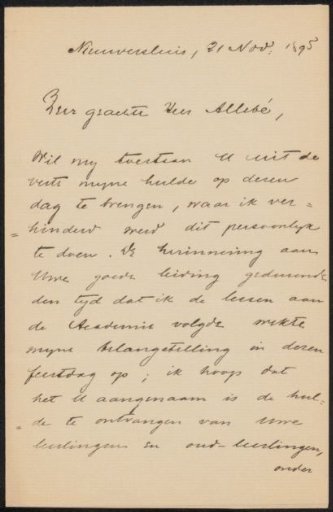 Nieuwersluis, 21 Nov. 1895
Zeer geachte Heer Allebé,
Wil my toestaan U uit de
verte myne hulde op dezen
dag te brengen, waar ik ver=
=hinderd werd dit persoonlyk
te doen. De herinnering aan
Uwe goede leiding gedurende
den tyd dat ik de lessen aan
de Academie volgde wekte
myne belangstelling in dezen
feestdag op; ik hoop dat
het U aangenaam is de hul-
=de te ontvangen van Uwe
leerlingen en oud-leerlingen,
onder